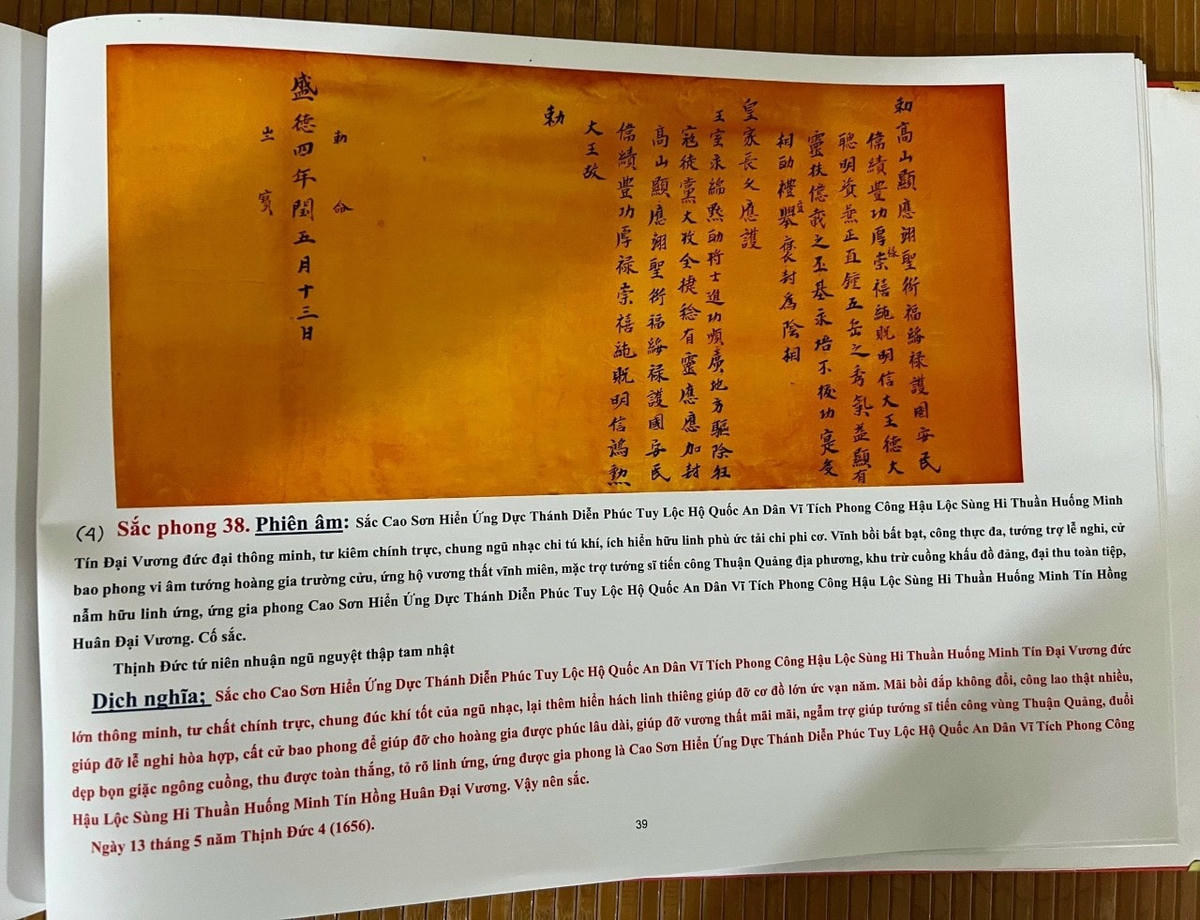 勅高山顯應翊聖衍福綏祿護國安民
偉績豐功厚祿崇禧純貺明信大王德大
聰明資兼正直鍾五岳之秀氣益顯有
靈扶億載之丕基永培不拔功寔多
相助禮宜舉褒封為陰相
皇家長久應護
王室永綿默助將士進功順廣地方驅除狂
寇徒黨大收全捷稔有靈應應加封
高山顯應翊聖衍福綏祿護國安民
偉績豐功厚祿崇禧純貺明信鴻勲
大王故
勅
勅命
盛德四年閏五月十三日
之寶
(4) Sắc phong 38. Phiên âm: Sắc Cao Sơn Hiển Ứng Dực Thánh Diễn Phúc Tuy Lộc Hộ Quốc An Dân Vĩ Tích Phong Công Hậu Lộc Sùng Hi Thuần Huống Minh
Tín Đại Vương đức đại thông minh, tư kiêm chính trực, chung ngũ nhạc chi tú khí, ích hiển hữu linh phù ức tải chi phi cơ. Vĩnh bồi bất bạt, công thực đa, tướng trợ lễ nghi, cử
bao phong vi âm tướng hoàng gia trường cửu, ứng hộ vương thất vĩnh miên, mặc trợ tướng sĩ tiến công Thuận Quảng địa phương, khu trừ cuồng khấu đồ đảng, đại thu toàn tiệp,
nẫm hữu linh ứng, ứng gia phong Cao Sơn Hiển Ứng Dực Thánh Diễn Phúc Tuy Lộc Hộ Quốc An Dân Vĩ Tích Phong Công Hậu Lộc Sùng Hi Thuần Huống Minh Tín Hồng
Huân Đại Vương. Cố sắc.
Thịnh Đức tứ niên nhuận ngũ nguyệt thập tam nhật
Dịch nghĩa; Sắc cho Cao Sơn Hiển Ứng Dực Thánh Diễn Phúc Tuy Lộc Hộ Quốc An Dân Vĩ Tích Phong Công Hậu Lộc Sùng Hi Thuần Huống Minh Tín Đại Vương đức
lớn thông minh, tư chất chính trực, chung đúc khí tốt của ngũ nhạc, lại thêm hiển hách linh thiêng giúp đỡ cơ đồ lớn ức vạn năm. Mãi bồi đắp không đổi, công lao thật nhiều,
giúp đỡ lễ nghi hòa hợp, cất cử bao phong để giúp đỡ cho hoàng gia được phúc lâu dài, giúp đỡ vương thất mãi mãi, ngầm trợ giúp tướng sĩ tiến công vùng Thuận Quảng, đuổi
dẹp bọn giặc ngông cuồng, thu được toàn thắng, tỏ rõ linh ứng, ứng được gia phong là Cao Sơn Hiển Ứng Dực Thánh Diễn Phúc Tuy Lộc Hộ Quốc An Dân Vĩ Tích Phong Công
Hậu Lộc Sùng Hi Thuần Huống Minh Tín Hồng Huân Đại Vương. Vậy nên sắc.
Ngày 13 tháng 5 năm Thịnh Đức 4 (1656).
39